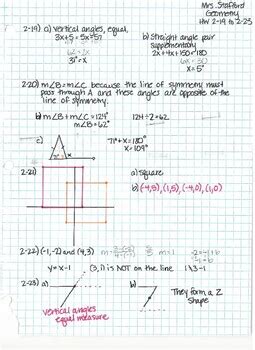 Mrs. Stafford
Geometry
HW 2-19 to 2-25
2-19) a) Vertical angles, equal,
3x+5 = 5x-57
b) Straight angle pair
supplementary
2x+4x+150=180
6x=30
x=5°
2-20) m∠B=m∠C because the line of symmetry must
pass through A and these angles are opposite of the
line of symmetry.
b) m∠B + m∠C =124°
m∠B=62°
124÷2=62
c)
71°+x=180°
x=109°
2-21)
a) Square
b) (-4,5), (1,5), (-4,0), (1,0)
2-22) (-1,-2) and (4,3)
m=1
y=x-1
(3,1) is NOT on the line
1≠3-1
2-23) a)
b)
They form a Z
shape
vertical angles
equal measure